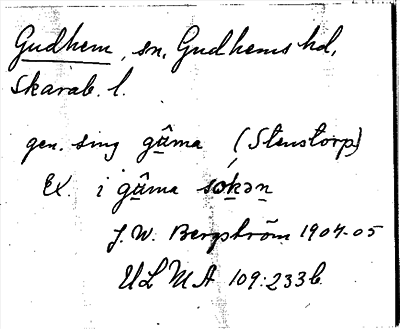 Gudhem, sn, Gudhems hd,
Skarab. l.
gen. sing gû̲ma (Stenstorp)
Ex. i gû̲ma so̲k̲ən̲
J. W. Bergström 1904-05
ULMA 109:233 b.